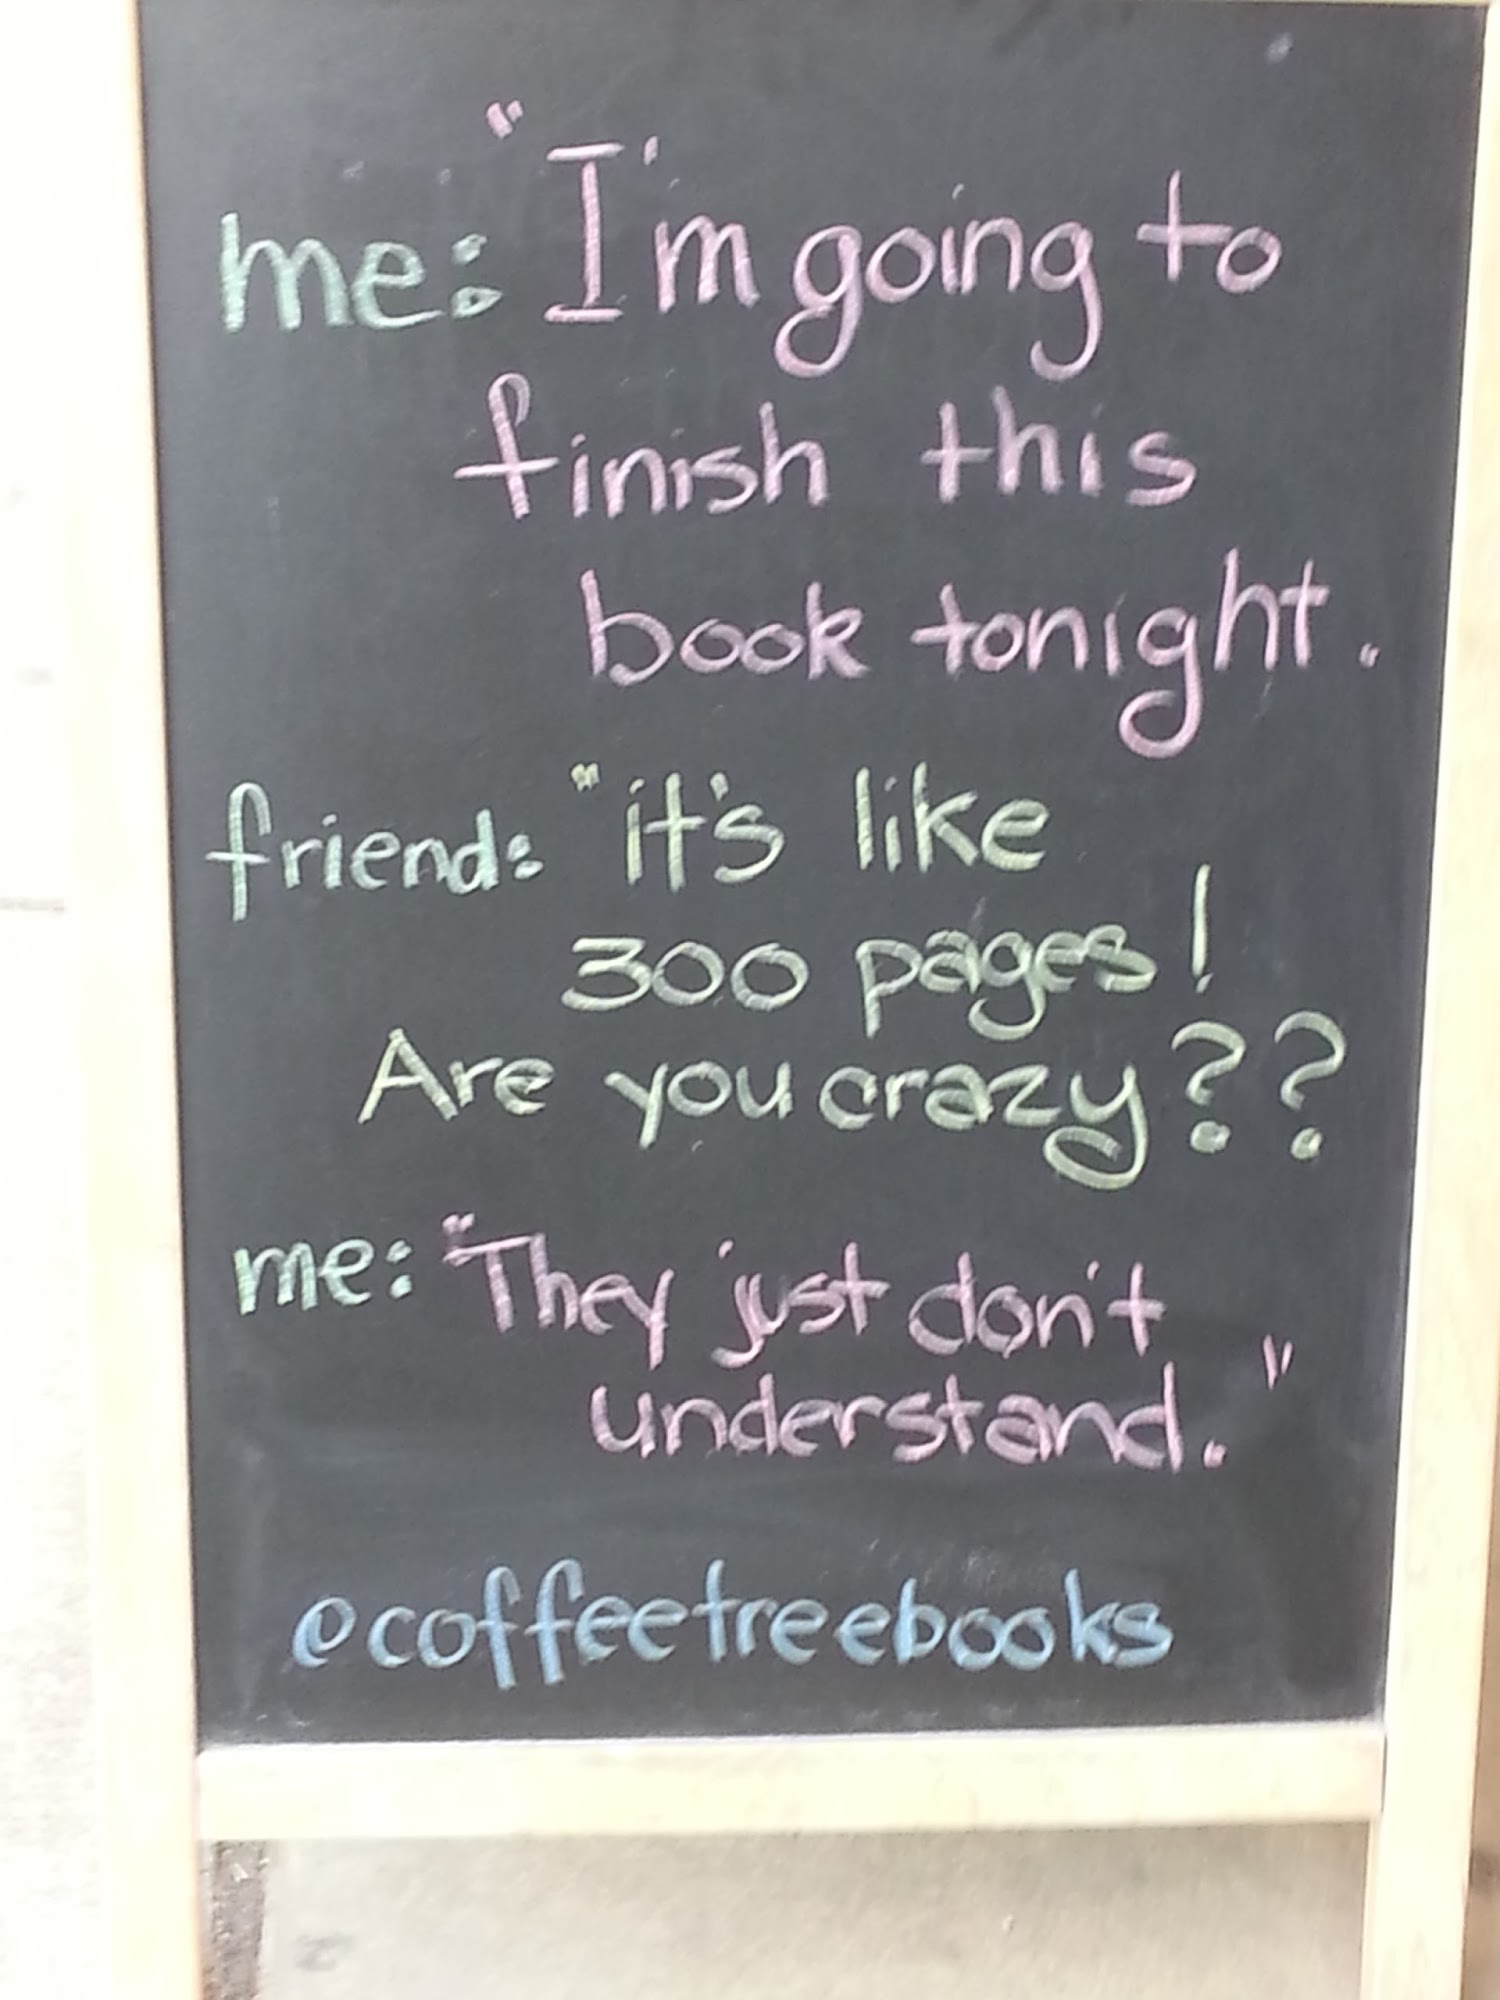 me: "I'm going to
finish this
book tonight.
friend: "it's like
300 pages!
Are you crazy??
me: "They just don't
understand."
@coffeetreebooks